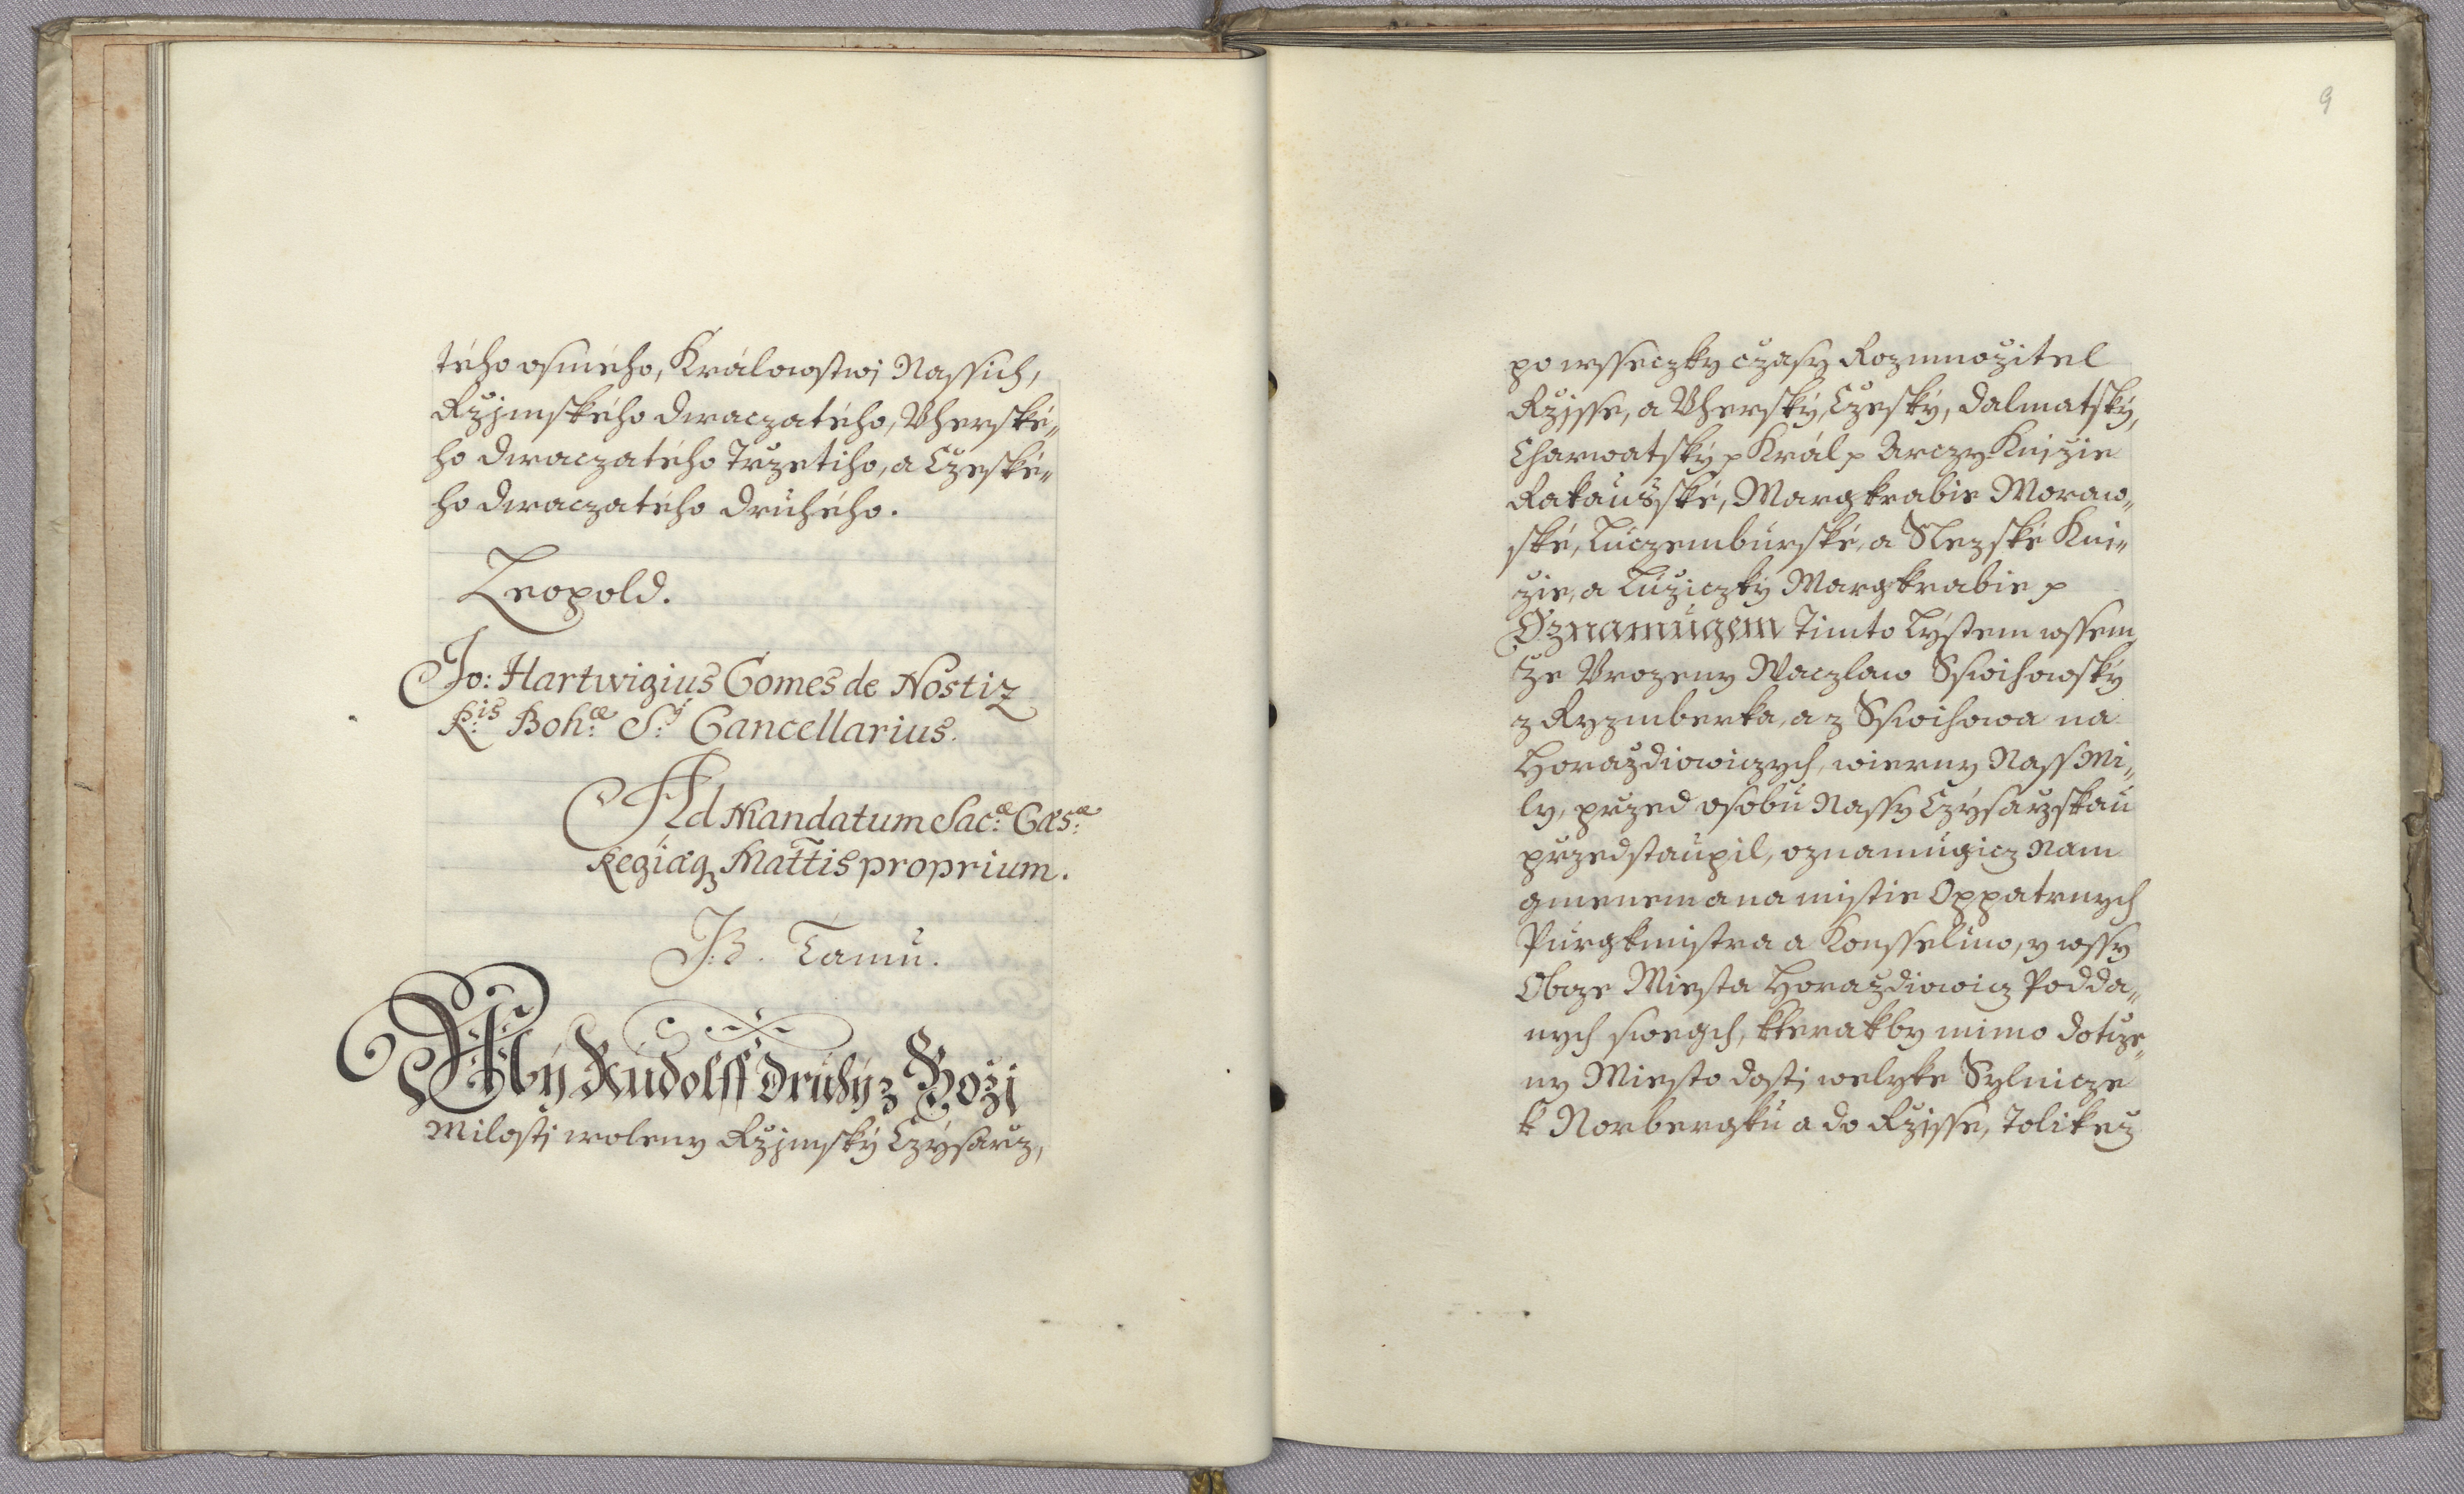 tého osmého, Králowstwj Nassich,
Rzjmského dwaczatého, Vherské„
ho dwaczatého Trzetiho, a Czeské„
ho dwaczatého druhého.
Leopold.
Jo: Hartwigius Comes de Nostiz
R:is Boh:æ S: Cancellarius.
Ad Mandatum Sac:æ Cæs:æ
Regiæq3 Mattis proprium.
J:B. Tamů.
My Rudolff druhý z Boži
Milosti woleny Rzjmský Czýsarz,
9
po wsseczky czasy Rozmnožitel
Rzjsse, a Vherský, Czeský, dalmatský,
Charwatský p Král p Arczy Knjzie
Rakauské, Margkrabie Moraw„
ské, Luczemburské, a Slezské Kni„
zie, a Lužiczký Margkrabie p
Oznamugem Timto Lýstem wssem,
že Vrozeny Waczlaw Sswihowský
z Ryzmberka, a z Sswihowa na
Horaždiowiczych, wierny Nass Mi„
ly, przed osobu Nassy Czýsarzskau
przedstaupil, oznamugicz Nam
gmenem a na mistie Oppatrnych
Purgkmistra a Konsseluw, y wssy
Obcze Miesta Horaždiowicz Podda„
nych swegch, kterakby mimo dotcze„
ny Miesto dosti welyke Sylnicze
k Norbergku a do Rzjsse, Tolikež